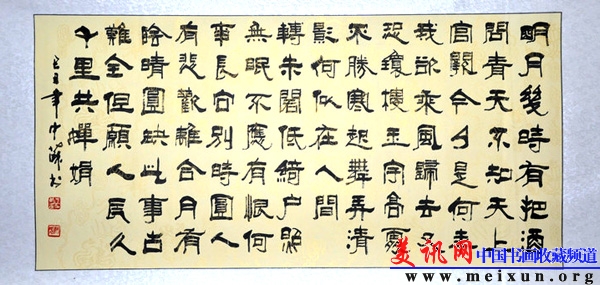 明月幾時有把酒
問青天不知天上
宮闕今夕是何年
我欲乘風歸去又
恐瓊樓玉宇高處
不勝寒起舞弄清
影何似在人間
轉朱閣低綺户照
無眠不應有恨何
事長向別時圓人
有悲歡離合月有
陰晴圓缺此事古
難全但願人長久
千里共嬋娟
己丑年中书
美讯网 中国书画收藏频道
www.meixun.org